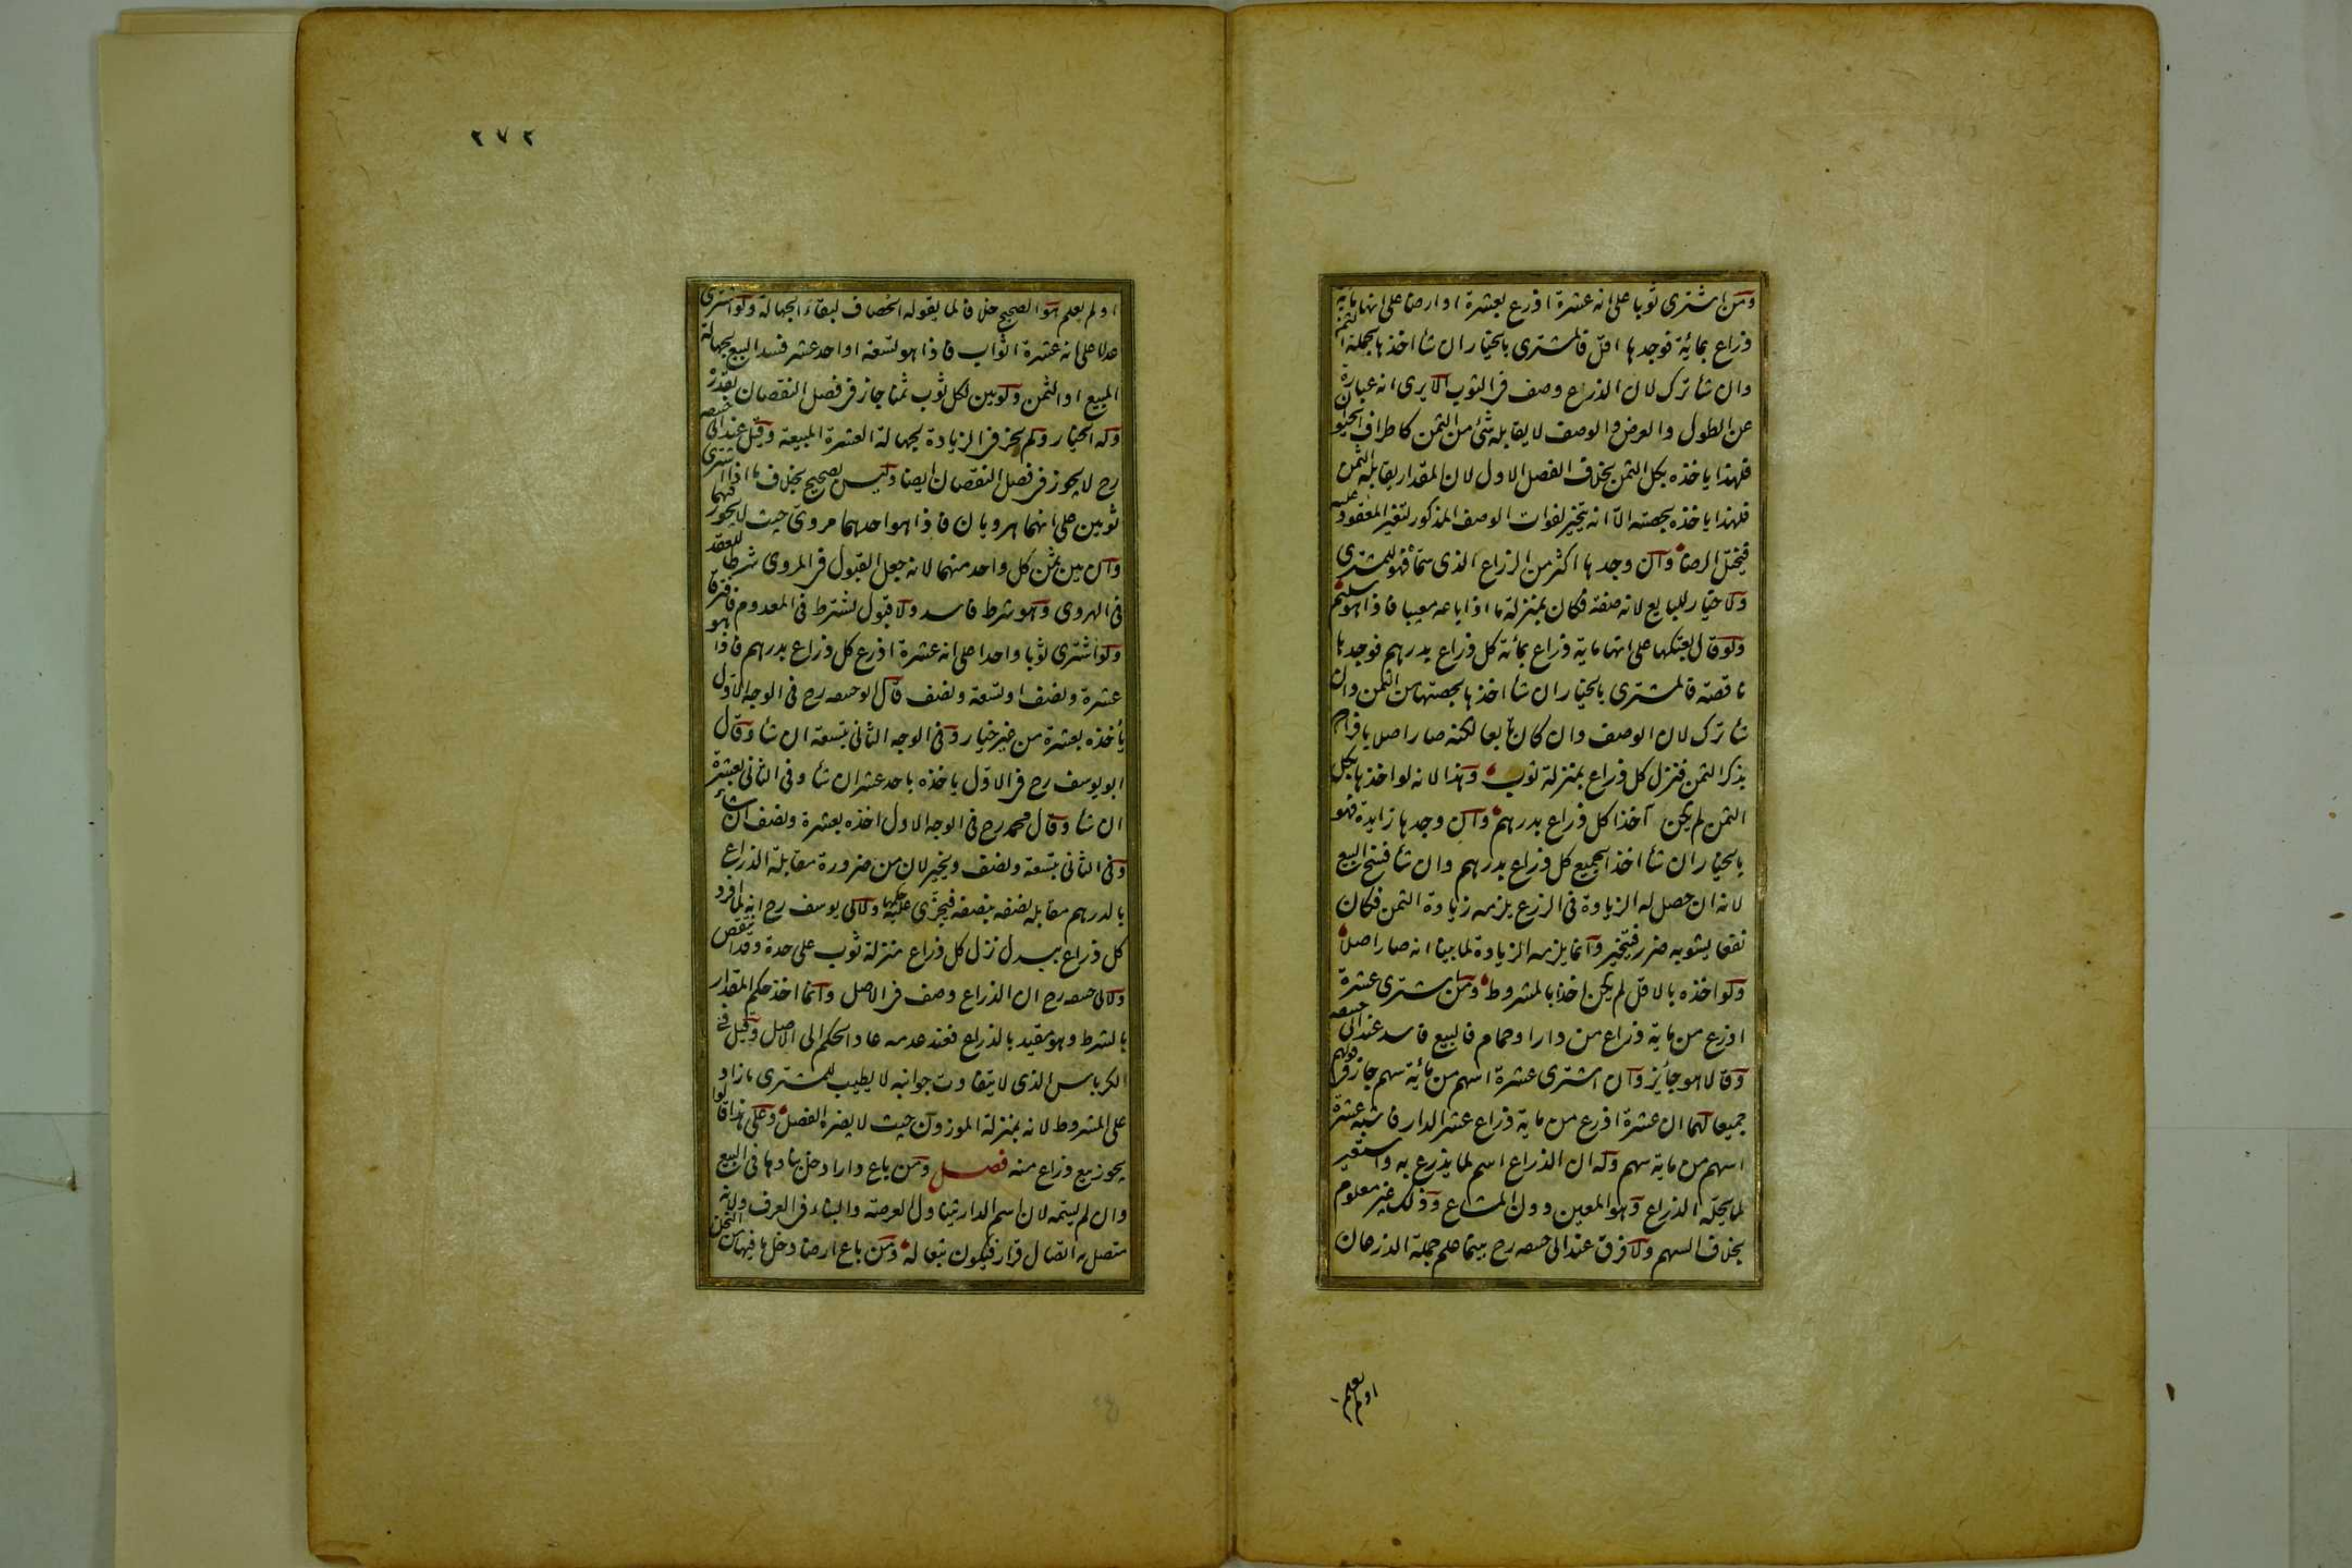 ومن اشترى ثوبا على انه عشرة اذرع بعشرة او ارضا على انها مائة
ذراع بمائة فوجدها اقل فالمشترى بالخيار ان شأ اخذها بجملة الثمن
وان شأ ترك لان الذراع وصف فى الثوب الا يرى انه عبارة
عن الطول والعرض والوصف لا يقابله شئ من الثمن كاطراف الحيوان
فلهذا ياخذه بكل الثمن بخلاف الفصل الاول لان المقدار يقابله الثمن
فلهذا ياخذه بحصته الا انه يتخير لفوات الوصف المذكور لتغير المعقود عليه
فيختل الرضا وان وجدها اكثر من الذراع الذى سمّاه فهو للمشترى
ولا خيار للبايع لانه صفة فكان بمنزلة ما اذا باعه معيبا فاذا هو سليم
ولو قال بعتكها على انها ماية ذراع بمائة كل ذراع بدرهم فوجدها
ناقصة فالمشترى بالخيار ان شأ اخذها بحصتها من الثمن وان
شأ ترك لان الوصف وان كان تابعا لكنه صار اصلا بافراده
بذكر الثمن فنزل كل ذراع بمنزلة ثوب وهذا لانه لو اخذها بكل
الثمن لم يكن آخذا كل ذراع بدرهم وان وجدها زايدة فهو
بالخيار ان شأ اخذ الجميع كل ذراع بدرهم وان شأ فسخ البيع
لانه ان حصل له الزيادة فى الذرع يلزمه زيادة الثمن فكان
نفعا يشوبه ضرر فيتخير وانما يلزمه الزيادة لما بينا انه صار اصلا
ولو اخذه بالاقل لم يكن اخذا بالمشروط ومن اشترى عشرة
اذرع من ماية ذراع من دار او حمام فالبيع فاسد عند ابى حنيفه
وقالا هو جائز وان اشترى عشرة اسهم من مائة سهم جاز فى قولهم
جميعا لهما ان عشرة اذرع من ماية ذراع عشر الدار فاشبه عشرة
اسهم من ماية سهم وله ان الذراع اسم لما يذرع به واستعير
لما يحله الذراع وهو المعين دون المشاع وذلك غير معلوم
بخلاف السهم ولا فرق عند ابى حنيفه رح بينما علم جملة الذرعان
او لم يعلم
٢٧٢
او لم يعلم هو الصحيح خلافا لما يقوله الخصاف لبقاء الجهالة ولو اشترى
عدلا على انه عشرة اثواب فاذا هو تسعة او احد عشر فسد البيع لجهالة
المبيع او الثمن ولو بين لكل ثوب ثمنا جاز فى فصل النقصان بقدره
وله الخيار ولم يجز فى الزيادة لجهالة العشرة المبيعة وقيل عند ابى حنيفه
رح لا يجوز فى فصل النقصان ايضا وليس بصحيح بخلاف ما اذا اشترى
ثوبين على انهما هرويان فاذا هو احدهما مروى حيث لا يجوز فيهما
وان بين ثمن كل واحد منهما لانه جعل القبول فى المروى شرطا للعقد
فى الهروى وهو شرط فاسد ولا قبول يشترط فى المعدوم فافترقا
ولو اشترى ثوبا واحدا على انه عشرة اذرع كل ذراع بدرهم فاذا هو
عشرة ونصف او تسعة ونصف قال ابو حنيفه رح فى الوجه الاول
يأخذه بعشرة من غير خيار وفى الوجه الثانى بتسعة ان شأ وقال
ابو يوسف رح فى الاول ياخذه باحد عشر ان شأ وفى الثانى بعشرة
ان شأ وقال محمد رح فى الوجه الاول اخذه بعشرة ونصف ان شأ
وفى الثانى بتسعة ونصف ويخير لان من ضرورة مقابلة الذراع
بالدرهم مقابلة نصفه بنصفه فيجزى عليه حكمها ولابى يوسف رح انه لما افرد
كل ذراع ببدل نزل كل ذراع منزلة ثوب على حدة وقد انتقص
ولابى حنيفه رح ان الذراع وصف فى الاصل وانما اخذ حكم المقدار
بالشرط وهو مقيد بالذراع فعند عدمه عاد الحكم الى الاصل وقيل فى
الكرباس الذى لا يتفاوت جوانبه لا يطيب للمشترى ما زاد
على المشروط لانه بمنزلة الموزون حيث لا يضره الفصل وعلى هذا قالوا
يجوز بيع ذراع منه فصل ومن باع دارا دخل بناوها فى البيع
وان لم يسمه لان اسم الدار يتناول العرصة والبناء فى العرف ولانه
متصل به اتصال قرار فيكون تبعا له ومن باع ارضا دخل ما فيها من النخل